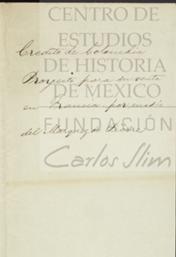 CENTRO DE
ESTUDIOS
DE HISTORIA
DE MEXICO
FUNDACIÓN
Carlos Slim
Credito de Colombia
Proyecto para su venta
en Francia por medio
del Marques de